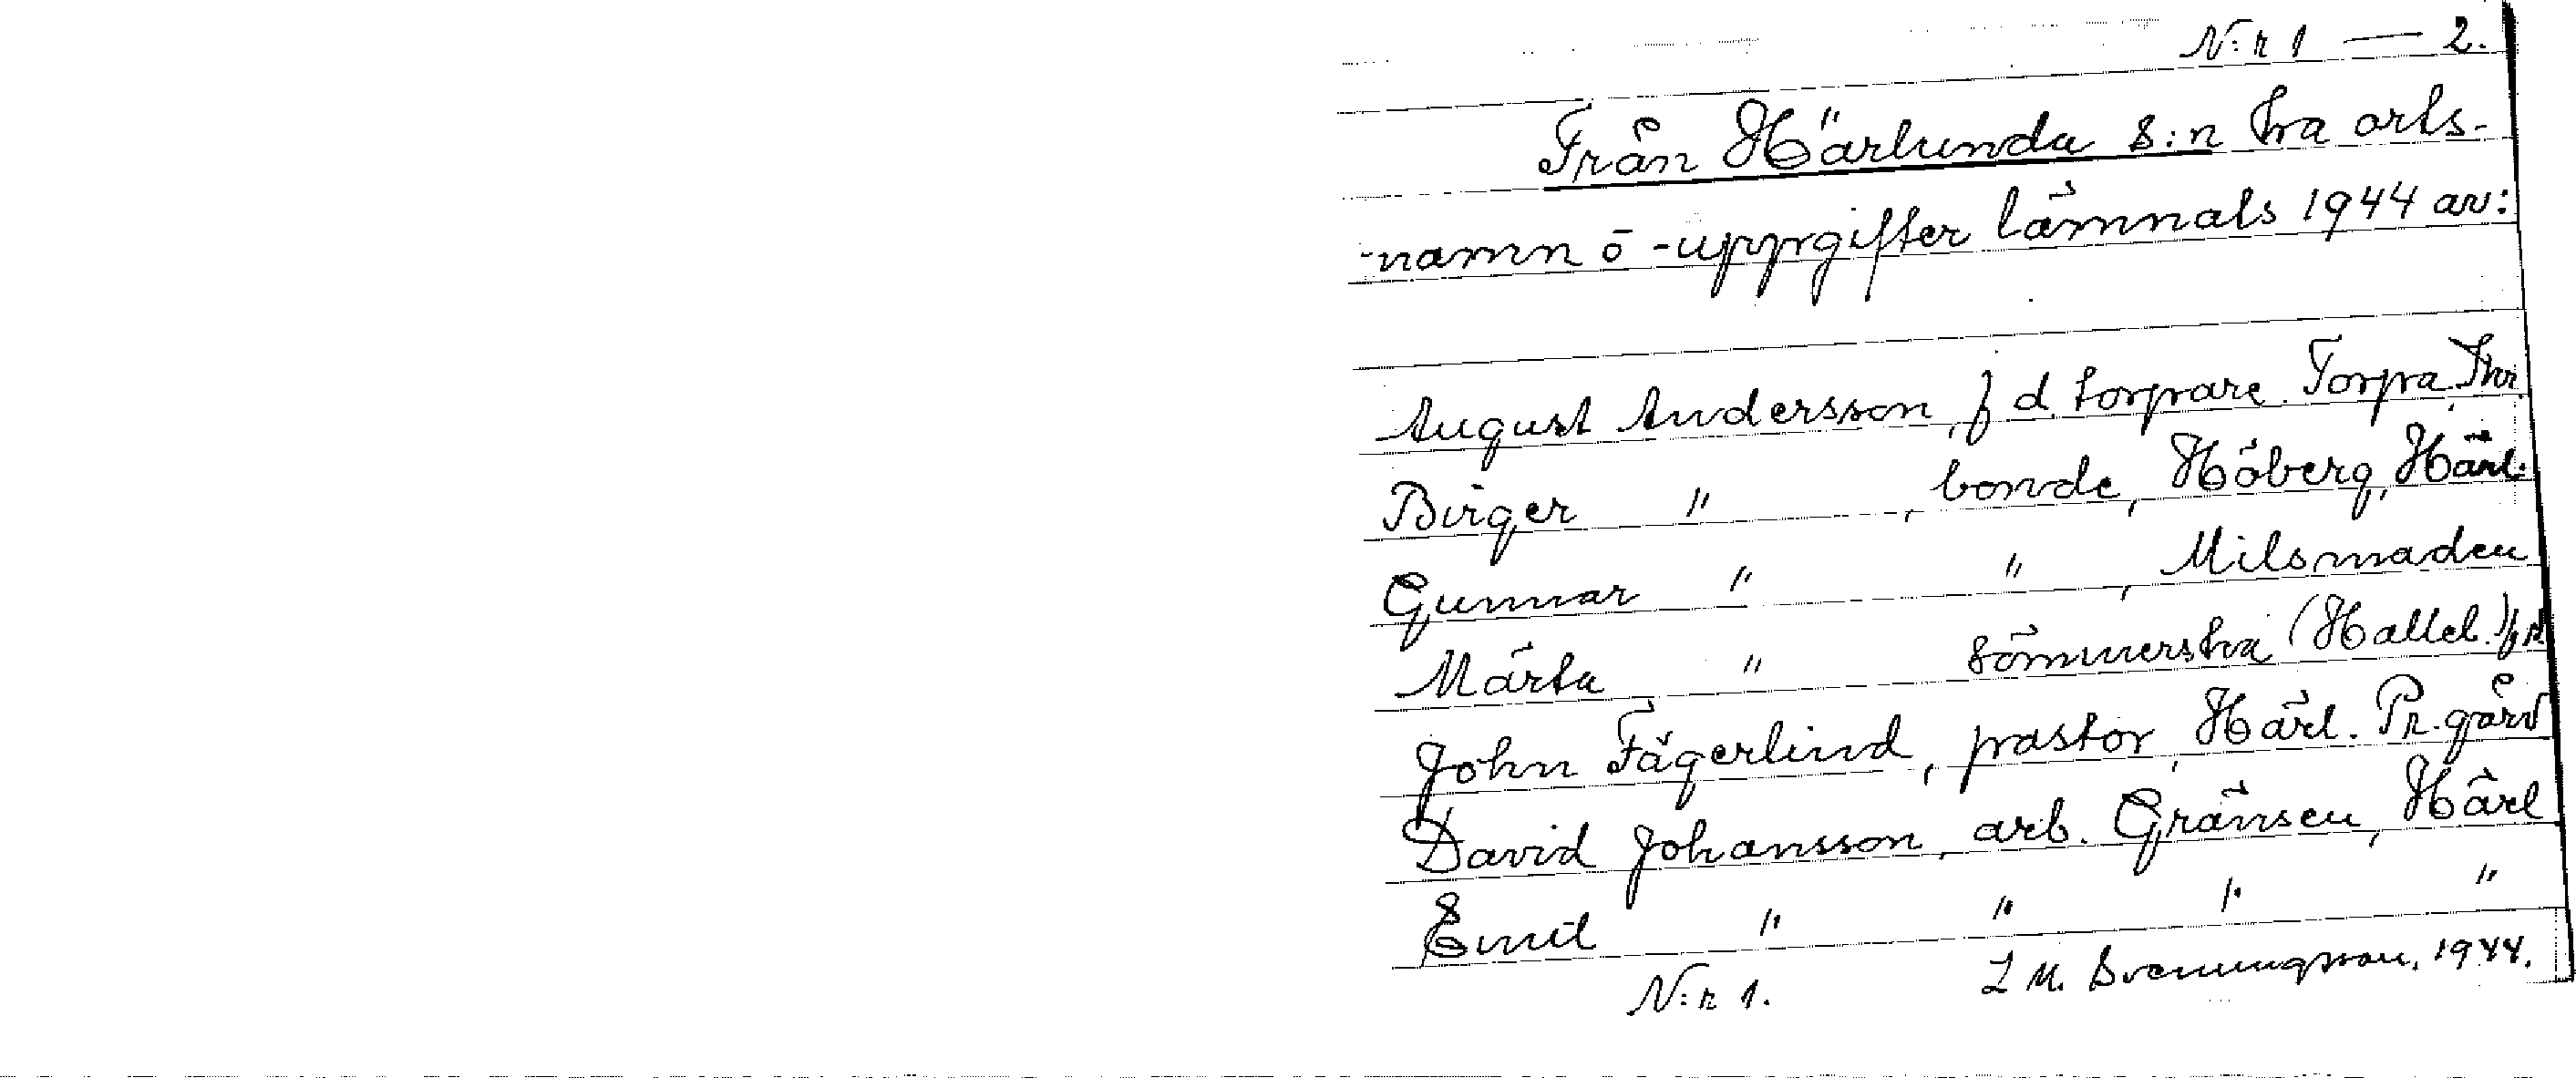 N:r 1 — 2.
Från Härlunda s:n ha orts-
-namn o -uppgifter lämnats 1944 av:
August Andersson, f d. torpare. Torpa,
Birger " , bonde, Höberg, Härl.
Gunnar " " , Milsmaden
Märta " sömmerska (Hallel.)
John Fägerlind, pastor, Härl. Pr.gård
David Johansson, arb. Gränsen, Härl
Emil " " " "
N:r 1. L M. Svenungsson. 1944.